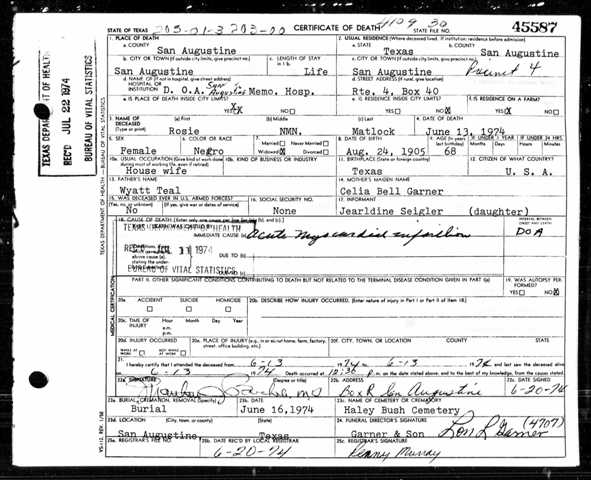 203-01-3 203-00
STATE OF TEXAS CERTIFICATE OF DEATH STATE FILE NO. 45587
1. PLACE OF DEATH 2. USUAL RESIDENCE (Where deceased lived. If institution: residence before admission)
a. COUNTY a. STATE b. COUNTY
San Augustine Texas San Augustine
b. CITY OR TOWN (If outside city limits, give precinct no.) c. LENGTH OF STAY in 1 b. c. CITY OR TOWN (If outside city limits, give precinct no.)
San Augustine Life San Augustine Precinct 4
d. NAME OF (If not in hospital, give street address) HOSPITAL OR INSTITUTION d. STREET ADDRESS (If rural, give location)
D. O.A. San Augustine Memo. Hosp. Rte, 4, Box 40
e. IS PLACE OF DEATH INSIDE CITY LIMITS? e. IS RESIDENCE INSIDE CITY LIMITS? f. IS RESIDENCE ON A FARM?
YES X NO YES NO YES NO
3. NAME OF DECEASED (Type or print) (a) First (b) Middle (c) Last 4. DATE OF DEATH
Rosie NMN. Matlock June 13, 1974
5. SEX 6. COLOR OR RACE 7. Married Never Married Widowed Divorced 8. DATE OF BIRTH 9. AGE (In years last birthday) IF UNDER 1 YEAR IF UNDER 24 HRS. Months Days Hours Minutes
Female Negro Aug. 24, 1905 68
10a. USUAL OCCUPATION (Give kind of work done during most of working life, even if retired) 10b. KIND OF BUSINESS OR INDUSTRY 11. BIRTHPLACE (State or foreign country) 12. CITIZEN OF WHAT COUNTRY?
House wife Texas U. S. A.
13. FATHER'S NAME 14. MOTHER'S MAIDEN NAME
Wyatt Teal Celia Bell Garner
15. WAS DECEASED EVER IN U.S. ARMED FORCES? (Yes, no, or unknown) (If yes, give war or dates of service) 16. SOCIAL SECURITY NO. 17. INFORMANT
No None Jearldine Seigler (daughter)
18. CAUSE OF DEATH (Enter only one cause per line) INTERVAL BETWEEN ONSET AND DEATH
IMMEDIATE CAUSE (a) Acute myocardial infarction DOA
REC'D JUL 11 1974
above cause (a), stating the under- DUE TO (b)
BUREAU OF VITAL STATISTICS
PART II. OTHER SIGNIFICANT CONDITIONS CONTRIBUTING TO DEATH BUT NOT RELATED TO THE TERMINAL DISEASE CONDITION GIVEN IN PART I(a) 19. WAS AUTOPSY PERFORMED?
YES NO
20a. ACCIDENT SUICIDE HOMICIDE 20b. DESCRIBE HOW INJURY OCCURRED. (Enter nature of injury in Part I or Part II of item 18.)
20c. TIME OF INJURY Hour Month Day Year
a.m.
p.m.
20d. INJURY OCCURRED 20e. PLACE OF INJURY (e.g., in or about home, farm, factory, street, office building, etc.) 20f. CITY, TOWN, OR LOCATION COUNTY STATE
WHILE AT WORK NOT WHILE AT WORK
21. I hereby certify that I attended the deceased from 6-13 1974 to 6-13 1974 and last saw the deceased alive
on 6-13 1974 Death occurred at 12:36 P m. on the date stated above; and to the best of my knowledge, from the causes stated.
22a. SIGNATURE (Degree or title) 22b. ADDRESS 22c. DATE SIGNED
MD Box R San Augustine 6-20-74
23a. BURIAL, CREMATION, REMOVAL (Specify) 23b. DATE 23c. NAME OF CEMETERY OR CREMATORY
Burial June 16,1974 Haley Bush Cemetery
23d. LOCATION (City, town, or county) (State) 24. FUNERAL DIRECTOR'S SIGNATURE
San Augustine, Texas Garner & Son Lon L Garner (4707)
25a. REGISTRAR'S FILE NO. 25b. DATE REC'D BY LOCAL REGISTRAR 25c. REGISTRAR'S SIGNATURE
6-20-74 Penny Murray
TEXAS DEPARTMENT OF HEALTH
REC'D JUL 22 1974
BUREAU OF VITAL STATISTICS
TEXAS DEPARTMENT OF HEALTH — BUREAU OF VITAL STATISTICS
MEDICAL CERTIFICATION
VS-112, REV. 1/58